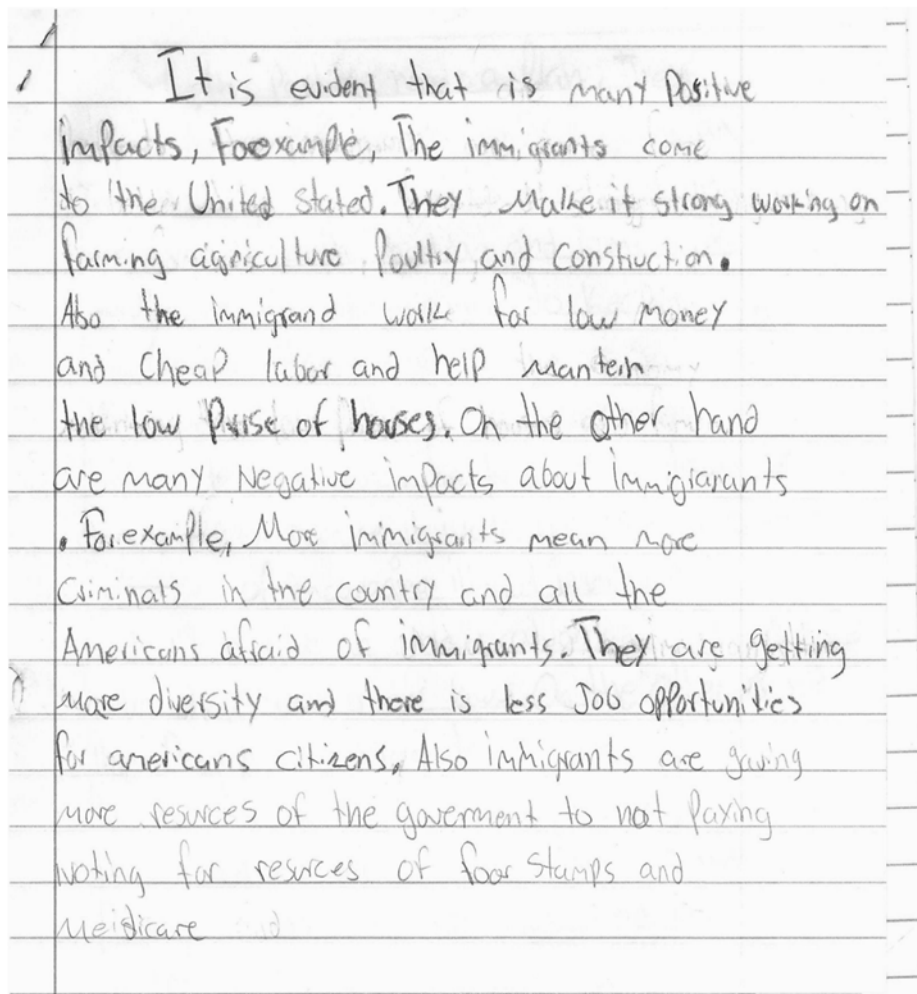 It is evident that is many Positive
impacts, Forexample, The immigrants come
to the United Stated. They Make it strong working on
farming agriscultura, Poultry, and construction.
Also the immigrand work for low Money
and cheap labor and help mantein
the low Prise of houses. On the other hand
are many Negative impacts about Immigrarants
. For example, More immigrants mean more
criminals in the country and all the
Americans afraid of immigrants. They are getting
more diversity and there is less Job opportunities
for americans citizens, Also immigrants are gaving
more resurces of the goverment to not Paying
noting for resurces of foor Stamps and
Meidicare